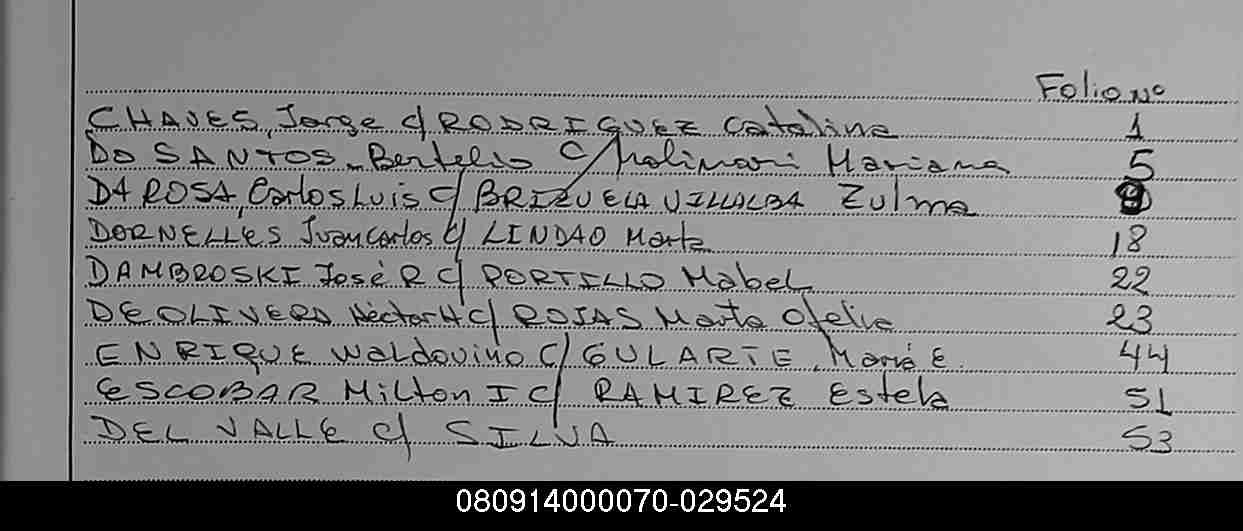 Folio Nº
CHAVES, Jorge c/ RODRIGUEZ Catalina 1
DO SANTOS, Bertelio c/ Molinari Mariana 5
DA ROSA, Carlos Luis c/ BRIZUELA VILLALBA Zulma 9
DORNELLES Juan Carlos c/ LINDAO Marta 18
DAMBROSKI José R c/ PORTILLO Mabel 22
DEOLIVERA Héctor H c/ ROJAS Marta Ofelia 23
ENRIQUE Waldovino c/ GULARTE, María E. 44
ESCOBAR Milton I c/ RAMIREZ Estela 51
DEL VALLE c/ SILVA 53
080914000070-029524